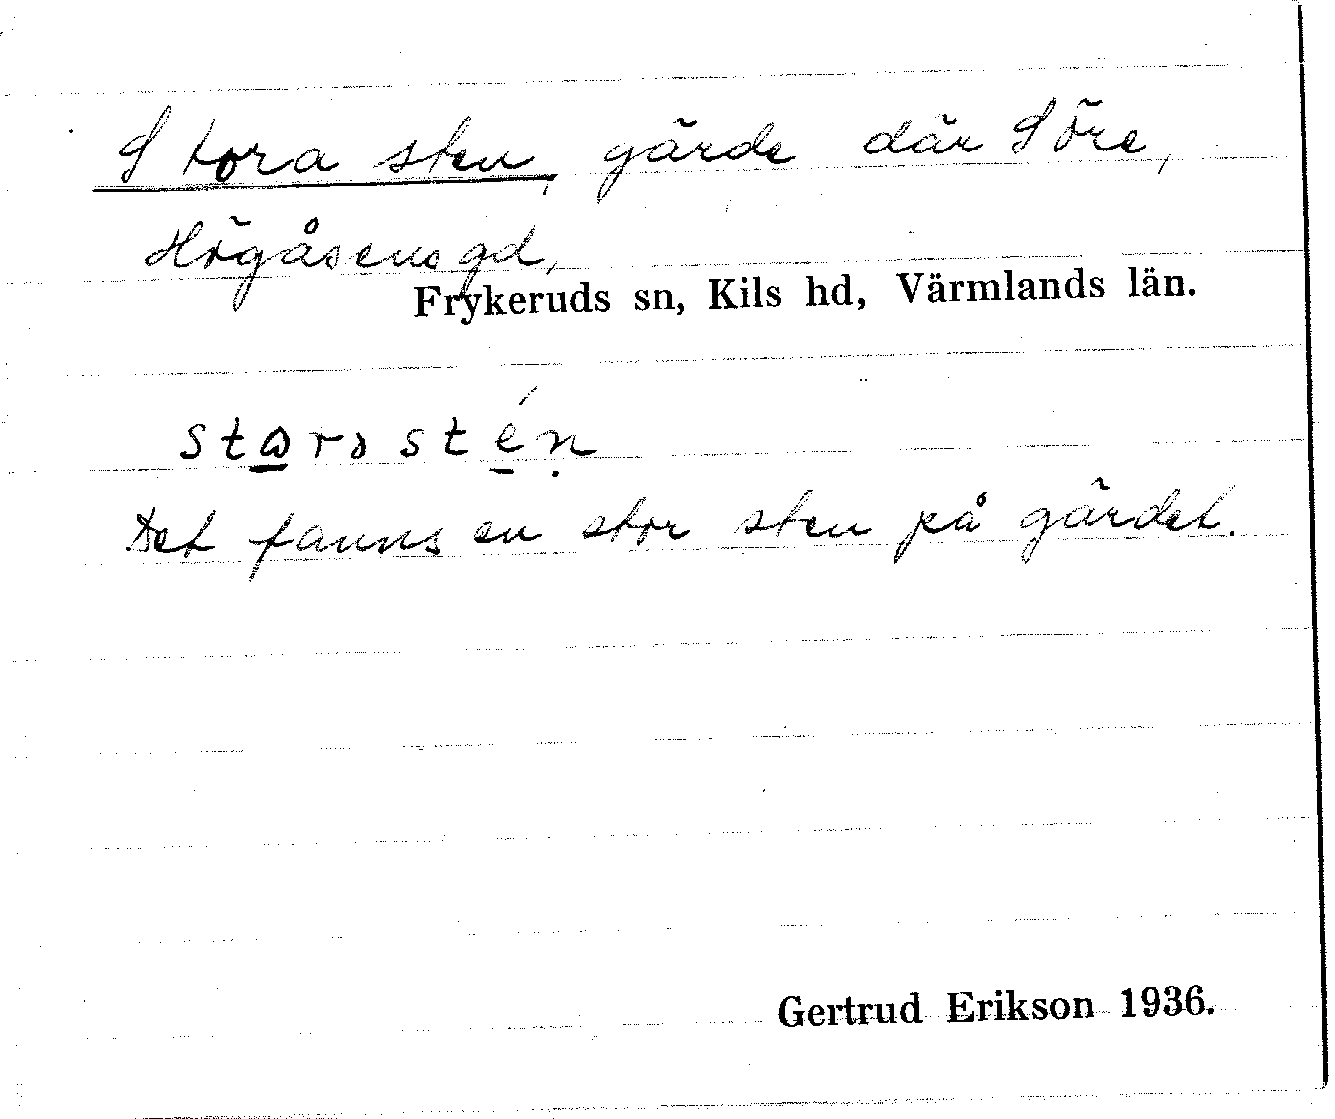 Stora sten, gärde där Söre,
Högåsens gd,
Frykeruds sn, Kils hd, Värmlands län.
Det fanns en stor sten på gärdet.
Gertrud Erikson 1936.